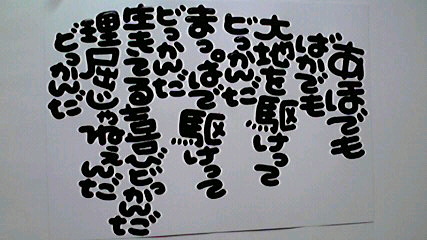 あほでも
ばかでも
大地を駆けって
どっかんだ
まっぱで駆けって
どっかんだ
生きてる喜びどっかんだ
理屈じゃねえんだ
どっかんだ